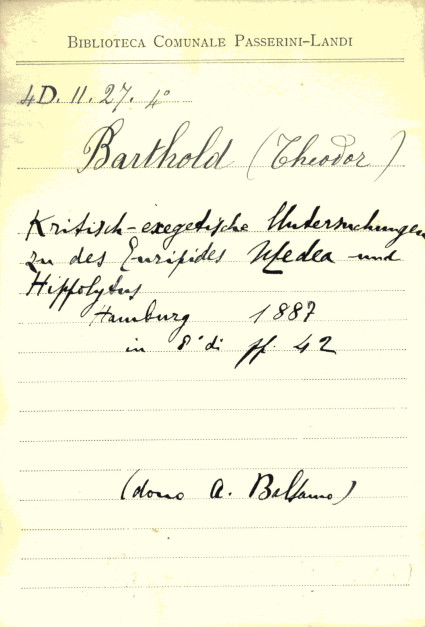 BIBLIOTECA COMUNALE PASSERINI-LANDI
4D. II. 27. 4°
Barthold (Theodor)
Kritisch-exegetische Untersuchungen
zu des Euripides Medea und
Hippolytus
Hamburg 1887
in 8° di pp. 42
(dono A. Balsamo)